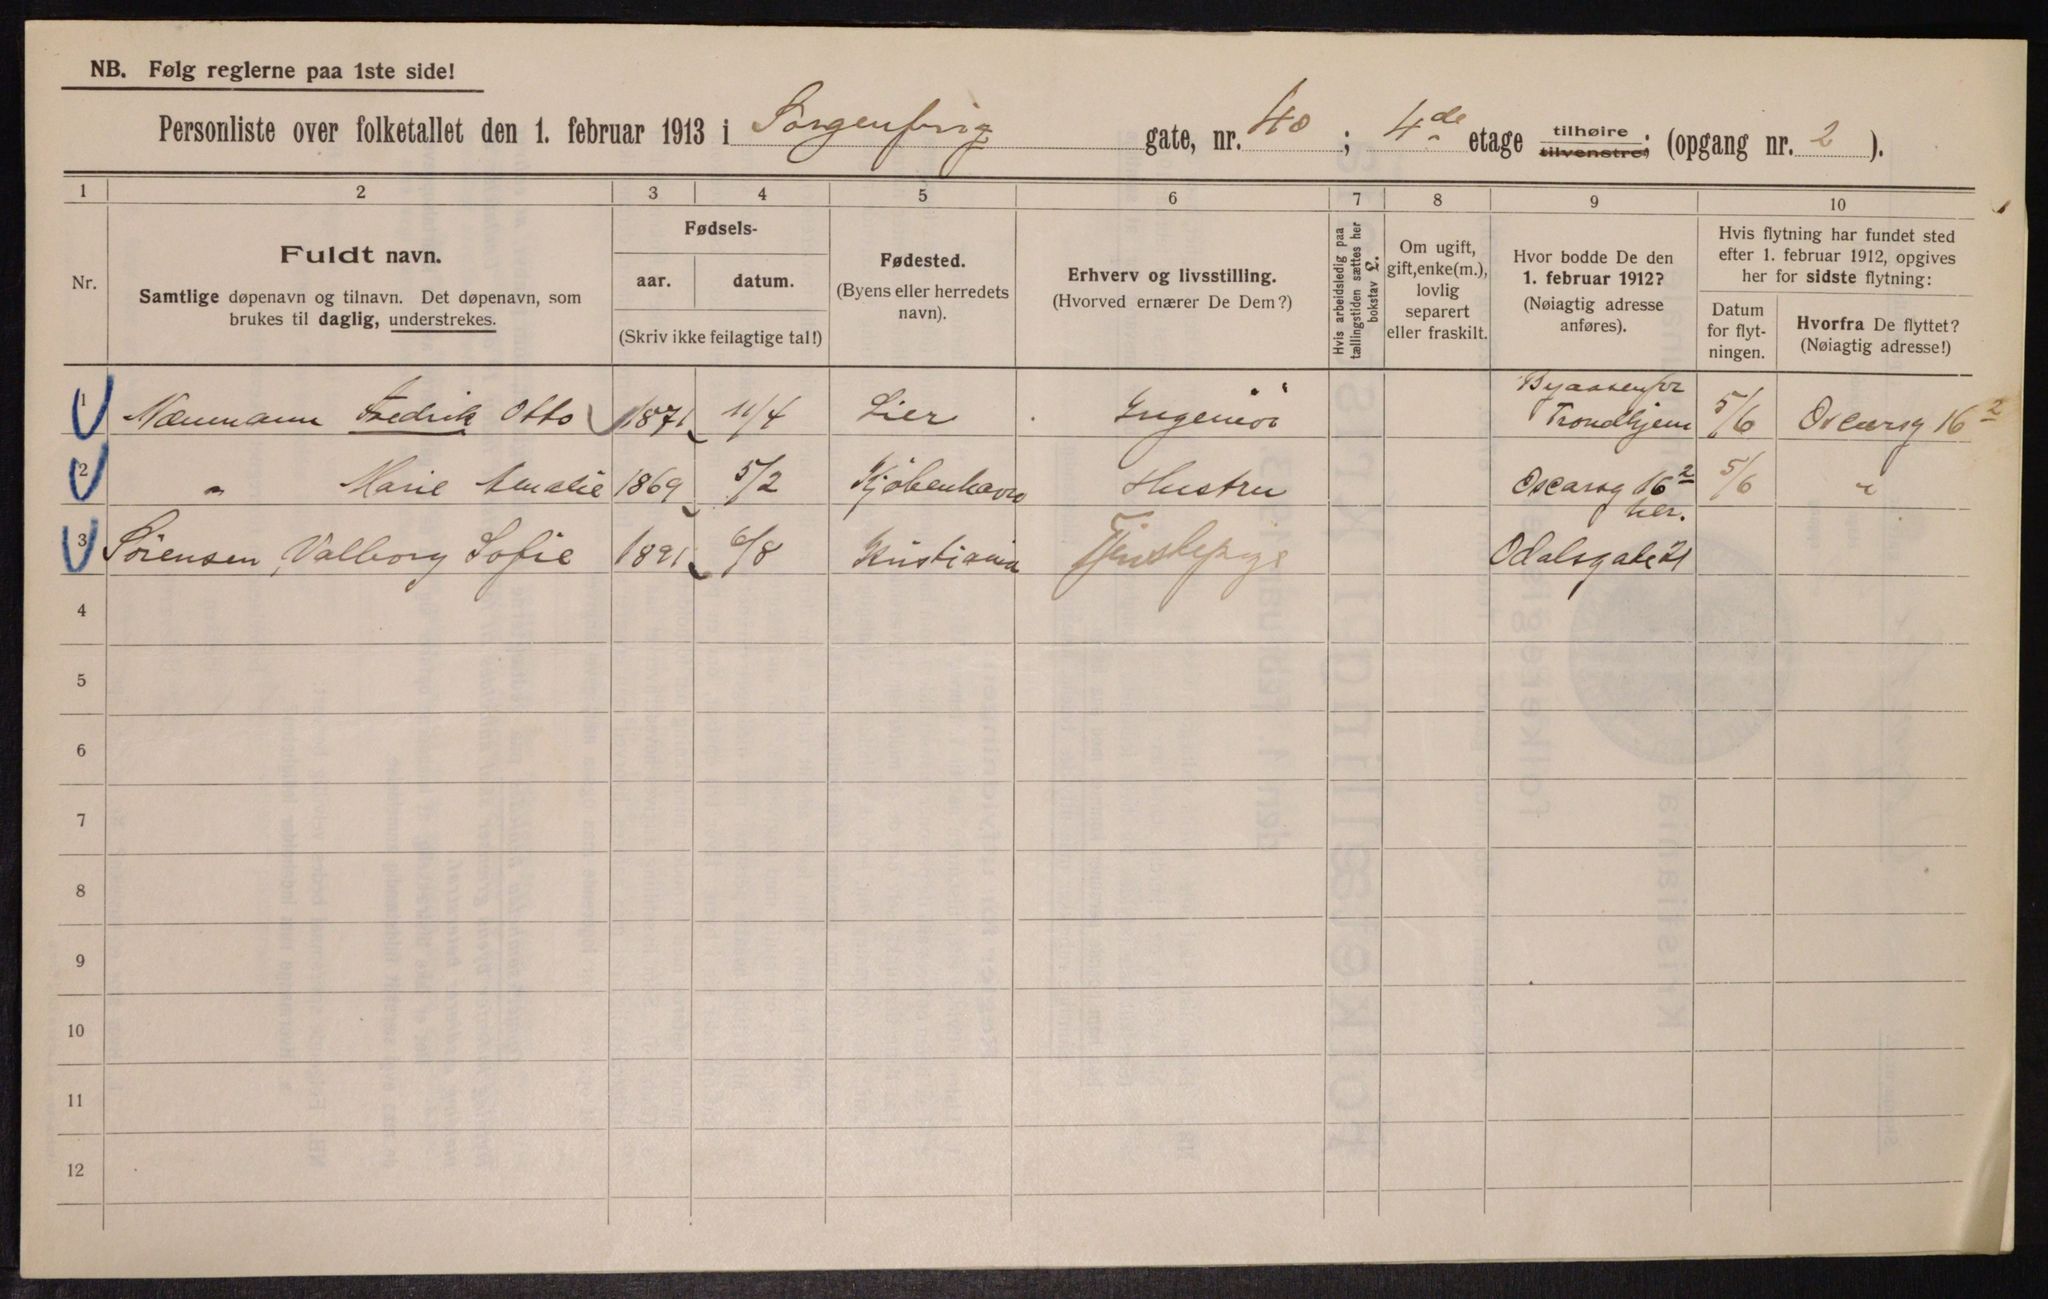 NB. Følg reglerne paa 1ste side!
Personliste over folketallet den 1. februar 1913 i Sorgenfrig gate, nr. 40 ; 4de etage tilhøire tilvenstre; (opgang nr. 2 ).
1 2 3 4 5 6 7 8 9 10
Nr.
Fuldt navn.
Samtlige døpenavn og tilnavn. Det døpenavn, som
brukes til daglig, understrekes.
Fødsels-
aar. datum.
(Skriv ikke feilagtige tal!)
Fødested.
(Byens eller herredets
navn).
Erhverv og livsstilling.
(Hvorved ernærer De Dem?)
Hvis arbeidsledig paa
tællingstiden sættes her
bokstav L.
Om ugift,
gift, enke(m.),
lovlig
separert
eller fraskilt.
Hvor bodde De den
1. februar 1912?
(Nøiagtig adresse
anføres).
Hvis flytning har fundet sted
efter 1. februar 1912, opgives
her for sidste flytning:
Datum
for flyt-
ningen.
Hvorfra De flyttet?
(Nøiagtig adresse!)
1 Fredrik Otto 1871 11/4 Lier Ingeniør Trondhjem 5/6 Oscarsg 16 2
2 " Marie Amalie 1869 5/2 Kjøbenhavn Hustru Oscarsg 16 2 her. 5/6 "
3 Sørensen, Valborg Sofie 1891 6/8 Kristiania Tjenstepige Odalsgate 21
4
5
6
7
8
9
10
11
12